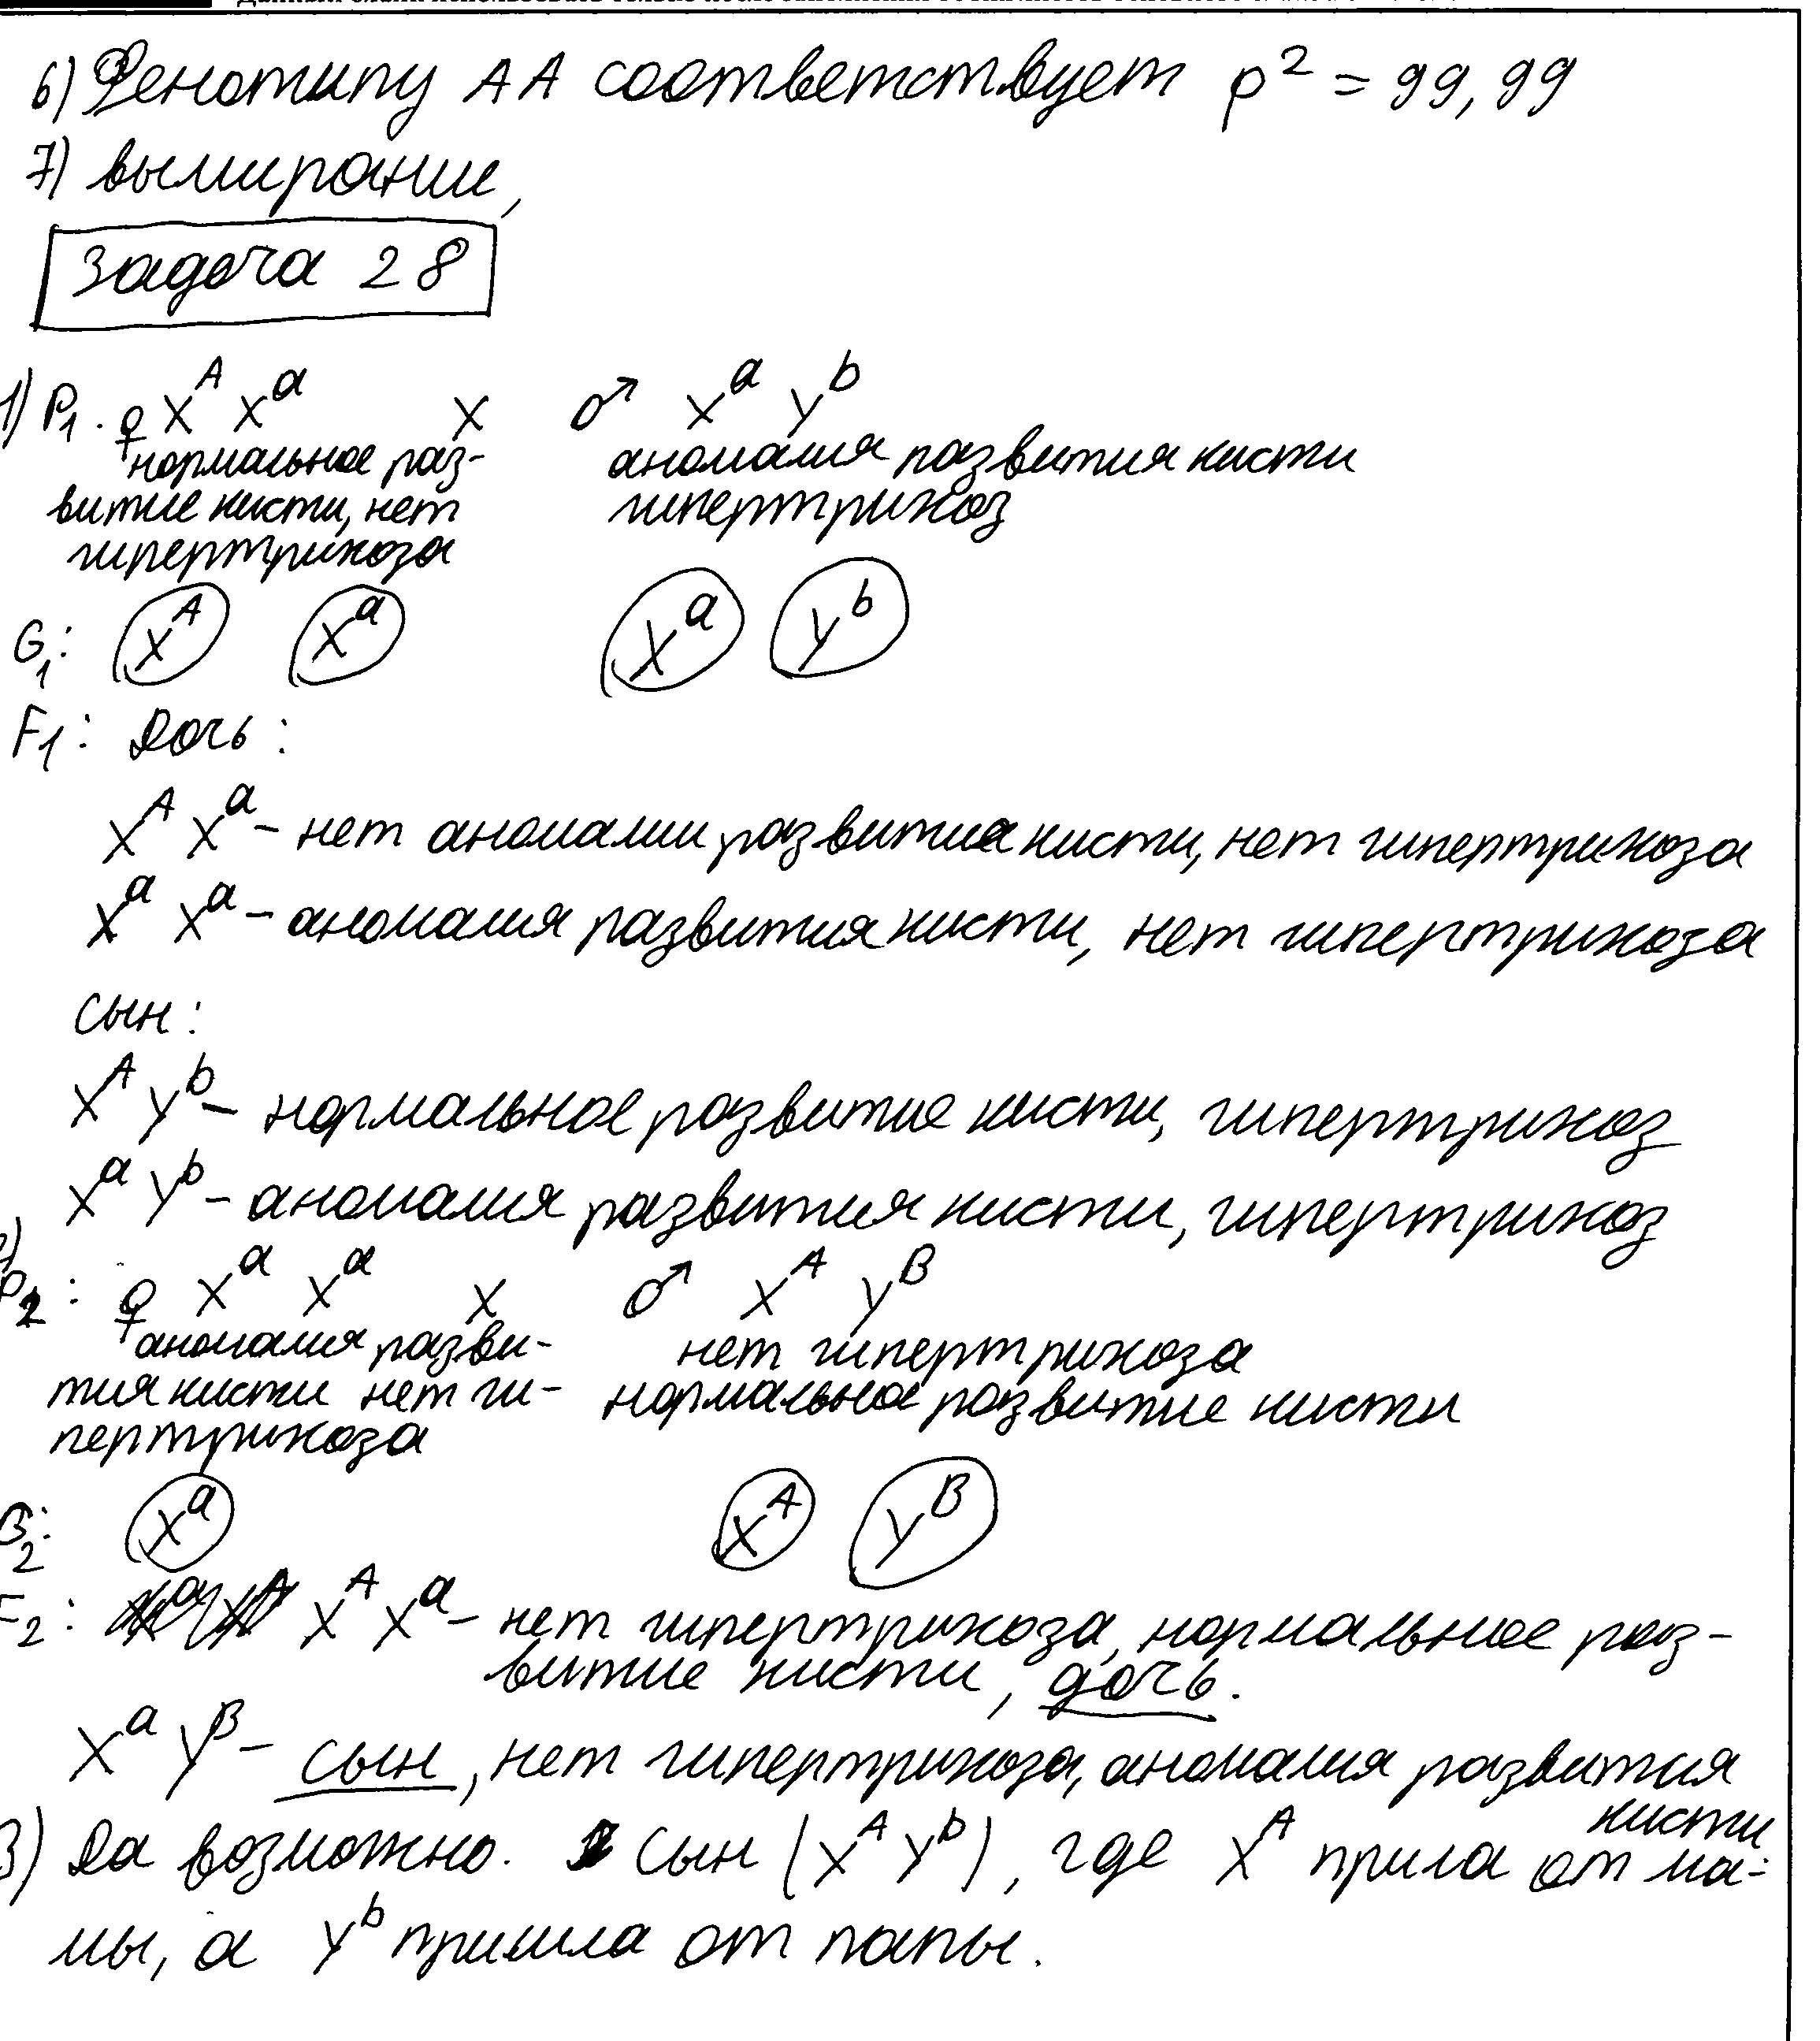 6) Фенотипу AA соответствует p² = 99,99
7) вымирание,
Задача 28
1) P₁. ♀ X^A X^a x ♂ X^a Y^b
нормальное раз- аномалия развития кисти
витие кисти, нет гипертрихоз
гипертрихоза
G₁: X^A X^a X^a Y^b
F₁: Дочь:
X^A X^a – нет аномалии развития кисти, нет гипертрихоза
X^a X^a – аномалия развития кисти, нет гипертрихоза
сын:
X^A Y^b – нормальное развитие кисти, гипертрихоз
X^a Y^b – аномалия развития кисти, гипертрихоз
P₂: ♀ X^a X^a x ♂ X^A Y^B
аномалия разви- нет гипертрихоза
тия кисти нет ги- нормальное развитие кисти
пертрихоза
X^a X^A Y^B
F₂: X^A X^a – нет гипертрихоза, нормальное раз-
витие кисти, дочь.
X^a Y^B – сын, нет гипертрихоза, аномалия развития
кисти
3) Да возможно. сын (X^A Y^b), где X^A прила от ма-
мы, а Y^b пришла от папы.